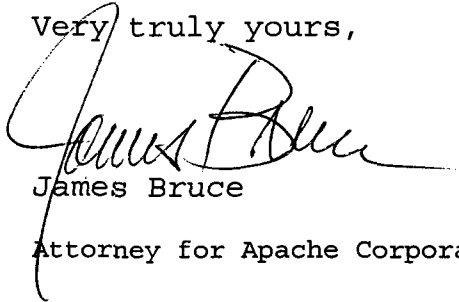 Very truly yours,
James Bruce
James Bruce
Attorney for Apache Corpora